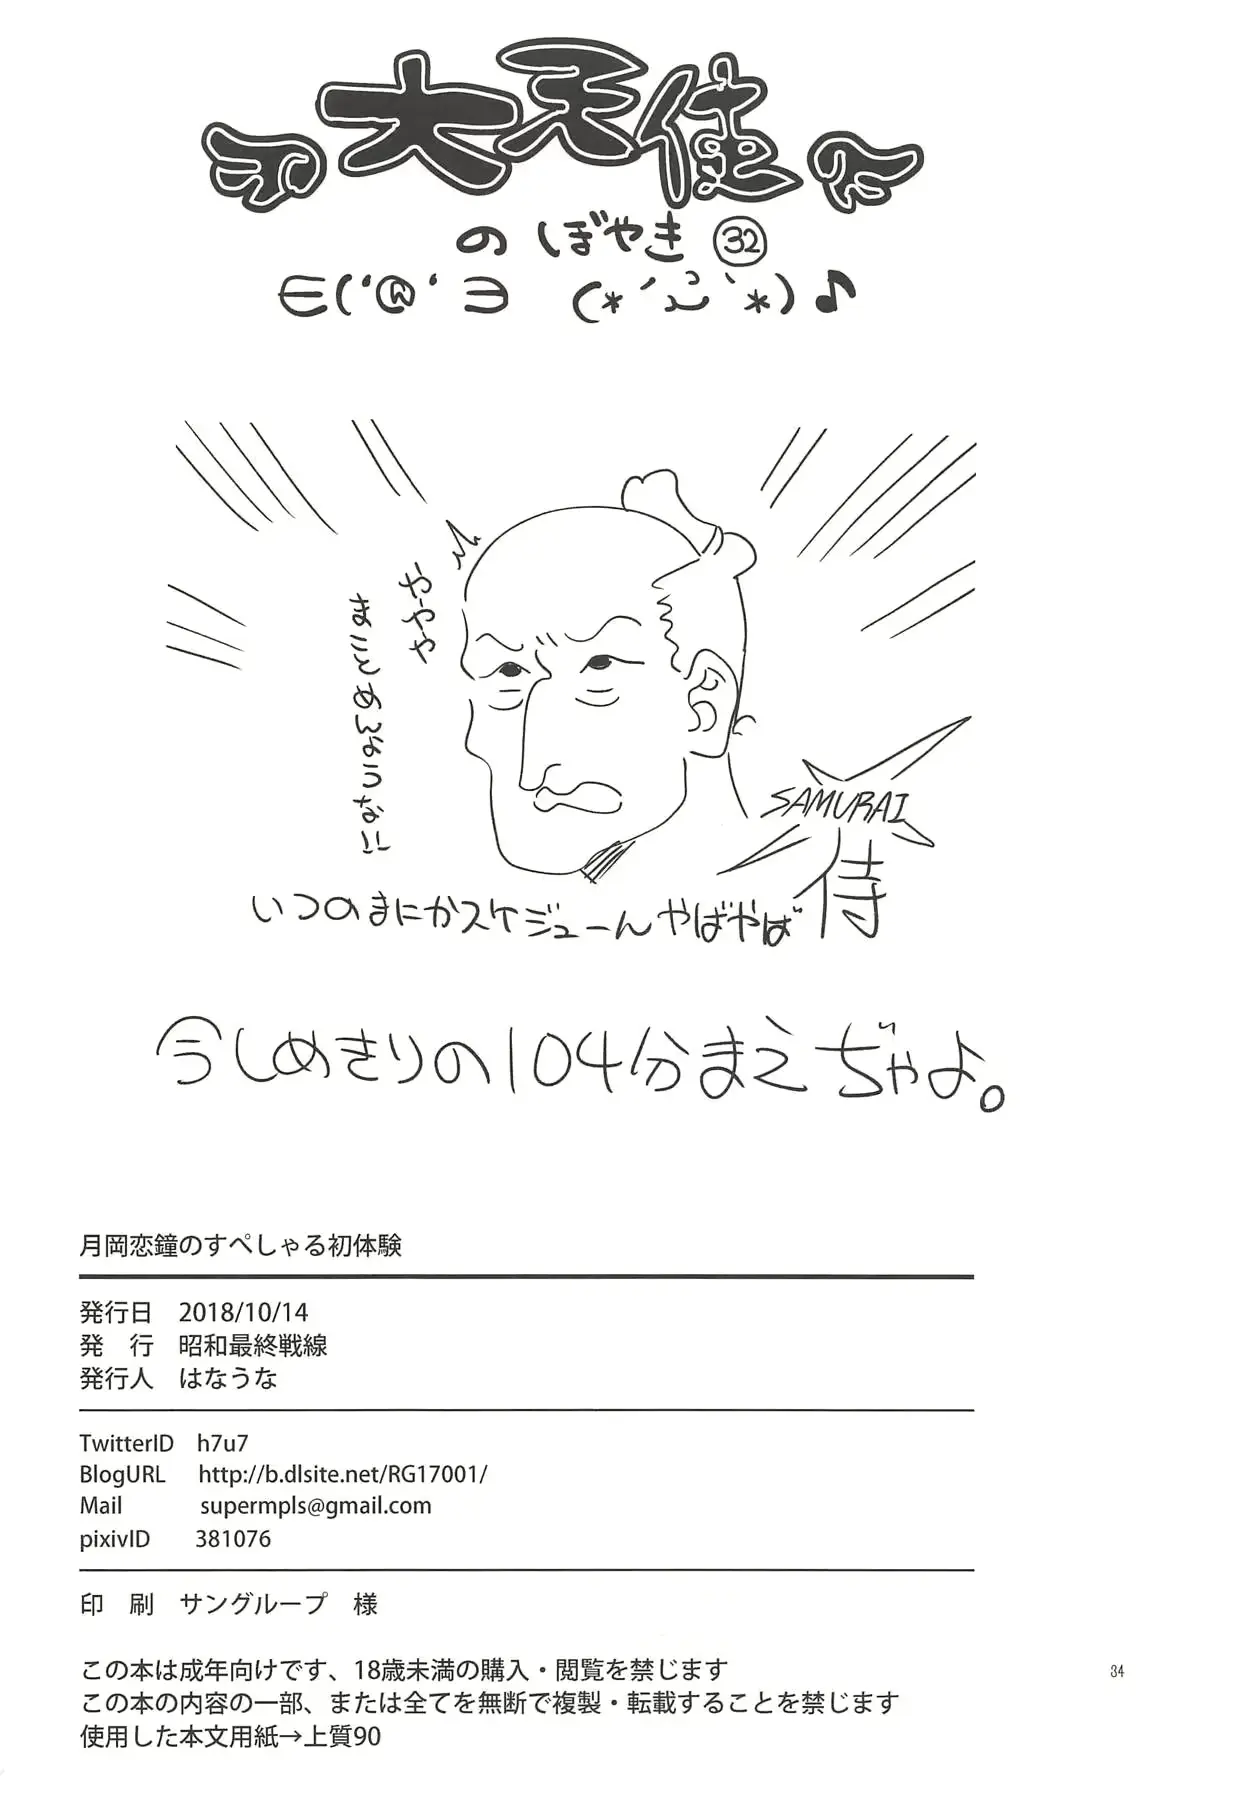 大天使
のぼやき 32
∈('@' ∋ (*´ `*)♪
ややや
まことめんような!!
SAMURAI
侍
いつのまにかスケジューんやばやば
今しめきりの104分まえぢゃよ。
月岡恋鐘のすぺしゃる初体験
発行日 2018/10/14
発 行 昭和最終戦線
発行人 はなうな
TwitterID h7u7
BlogURL http://b.dlsite.net/RG17001/
Mail supermpls@gmail.com
pixivID 381076
印 刷 サングループ 様
この本は成年向けです、18歳未満の購入・閲覧を禁じます
この本の内容の一部、または全てを無断で複製・転載することを禁じます
使用した本文用紙→上質90
34